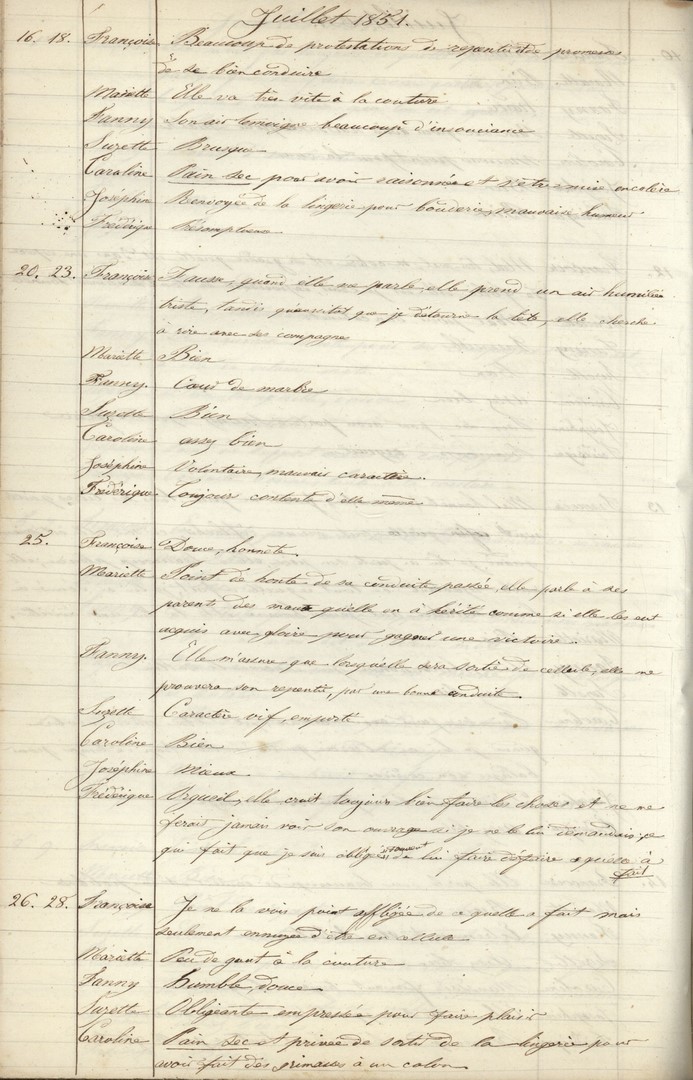 Juillet 1851.
16. 18. Françoise Beaucoup de protestations de repentir et de promesses
de se bien conduire
Mariette Elle va très vite à la couture
Fanny Son air témoigne beaucoup d'insouciance
Suzette Brusque
Caroline Pain sec pour avoir raisonnée et s'être mise en colère
Joséphine Renvoyée de la lingerie pour bouderie, mauvaise humeur
Frédérique Présomptueuse
20. 23. Françoise Fausse, quand elle me parle, elle prend un air humilié
triste, tandis qu'aussitot que je détourne la tête, elle cherche
à rire avec ses compagnes
Mariette Bien
Fanny. Cœur de marbre
Suzette Bien
Caroline assez bien
Joséphine Volontaire, mauvais caractère.
Frédérique Toujours contente d'elle même
25. Françoise Douce, honnête
Mariette Point de honte de sa conduite passée, elle parle à ses
parents des maux qu'elle en à hérité comme si elle les eut
acquis avec gloire pour gagner une victoire.
Fanny. Elle m'assure que lorsqu'elle sera sortie de cellule, elle me
prouvera son repentir, par une bonne conduite.
Suzette Caractère vif, emporté
Caroline Bien
Joséphine Mieux
Frédérique Orgueil, elle croit toujours bien faire les choses et ne me
ferait jamais voir son ouvrage si je ne le lui demandais, ce
qui fait que je suis obligée souvent de lui faire défaire ce qu'elle à
fait
26. 28. Françoise Je ne la vois point affligée de ce quelle a fait mais
seulement ennuyée d'être en cellule
Mariette Peu de gout à la couture
Fanny Humble, douce
Suzette Obligeante empressée pour faire plaisir
Caroline Pain sec et privée de sortir de la lingerie pour
avoir fait des grimaces à un colon